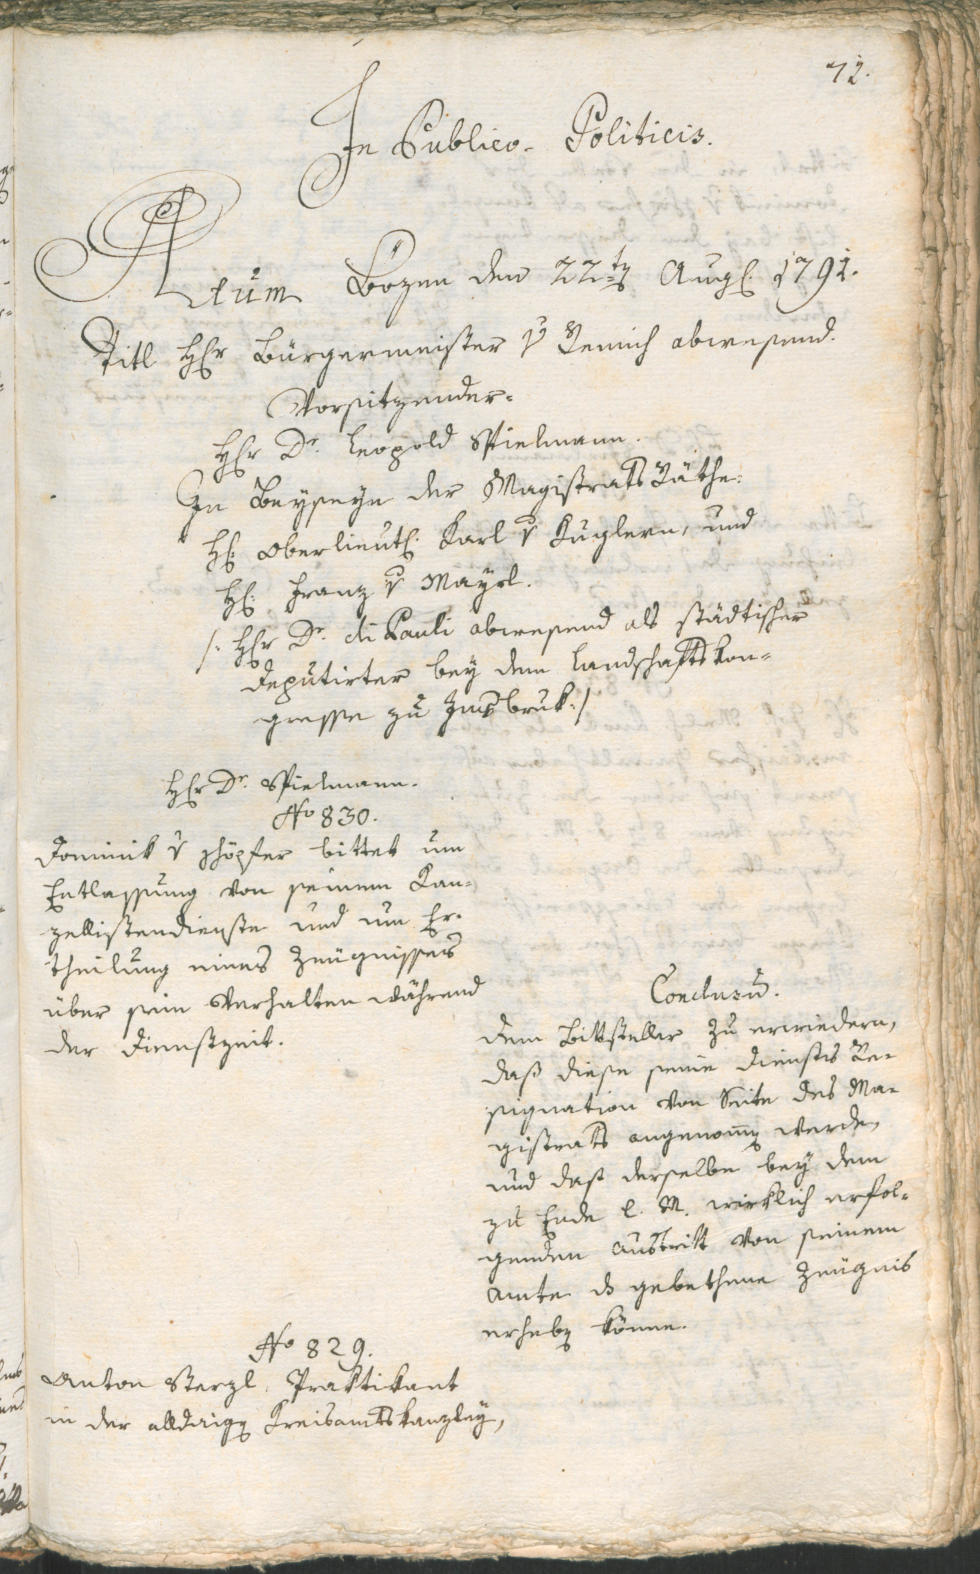 72.
In Publico-Politicis.
Actum Bozen den 22tn Augl. 1791.
Titl Hhr Bürgermeister v Remich abwesend.
Vorsitzender.
Hhr Dr. Leopold Spielmann.
In Beyseyn der Magistrats Räthe:
Hl: Oberlieutl. Karl v Kuglern, und
Hl: Franz v Mayrl.
/: Hhr Dr. di Pauli abwesend als städtischer
Deputirter bey dem Landschaftskon-
gresse zu Innsbruk :/
Hhr Dr. Spielmann.
No 830.
Dominik v Schöpfer bittet um
Entlassung von seinem Kan-
zellistendienste und um Er-
theilung eines Zeugnisses
über sein Verhalten während
der Dienstzeit.
Conclusū.
Dem Bittsteller zu erwiedern,
daß diese seine Dienstes Re-
signation von Seite des Ma-
gistrats angenom̄en werde,
und daß derselbe bey dem
zu Ende l. M. wirklich erfol-
genden Austritt von seinem
Amte ds gebethene Zeugnis
erheben könne.
No 829.
Anton Sterzl, Praktikant
in der alldaigen Kreisamtskanzley,